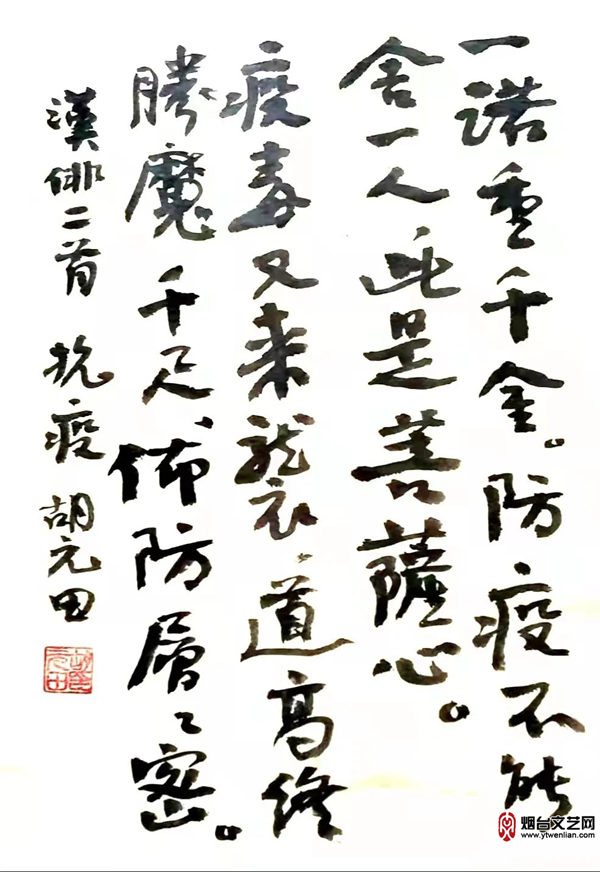 一诺重千金。防疫不能
舍一人此是菩薩心。
疫毒又来袭、道高终
勝魔千尺佈防層々密。
漢俳二首 抗疫 胡元田
烟台文艺网
www.ytwenlian.com